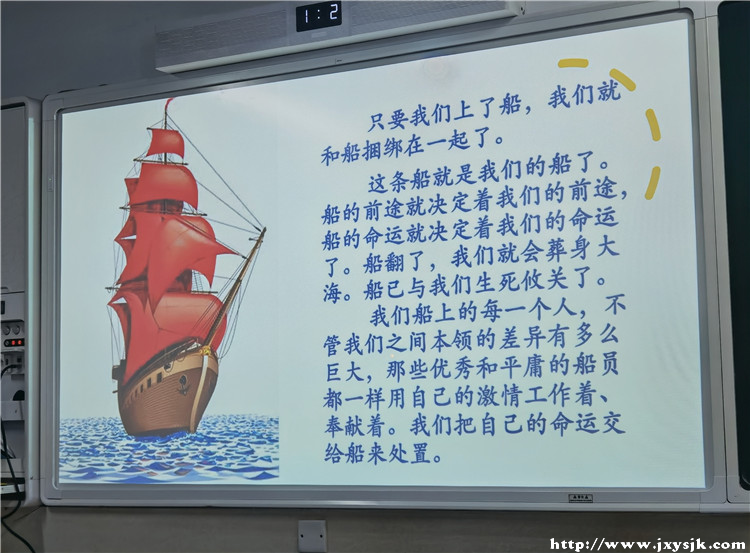 1:2
只要我们上了船，我们就
和船捆绑在一起了。
这条船就是我们的船了。
船的前途就决定着我们的前途，
船的命运就决定着我们的命运
了。船翻了，我们就会葬身大
海。船已与我们生死攸关了。
我们船上的每一个人，不
管我们之间本领的差异有多么
巨大，那些优秀和平庸的船员
都一样用自己的激情工作着、
奉献着。我们把自己的命运交
给船来处置。
http://www.jxysjk.com